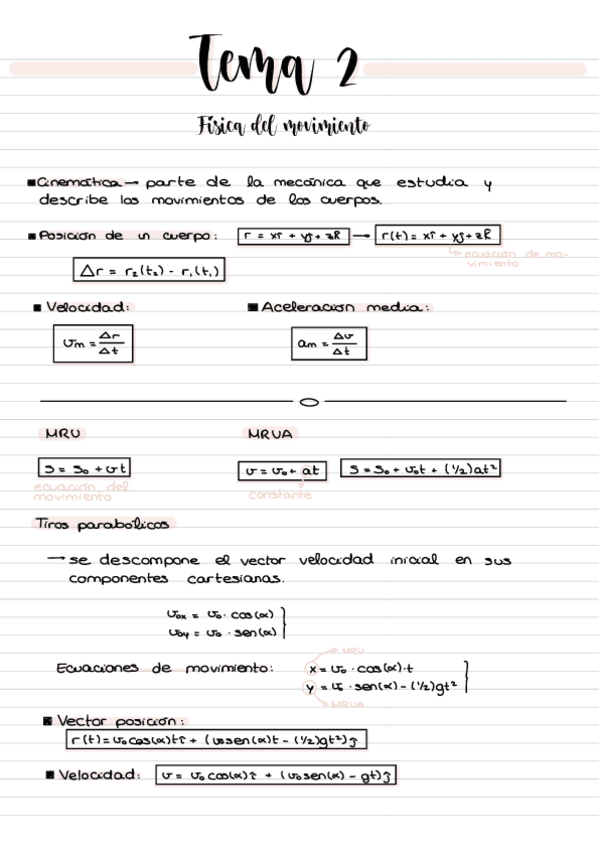 Tema 2
Física del movimiento
Cinemática → parte de la mecánica que estudia y
describe los movimientos de los cuerpos.
Posición de un cuerpo: r = xî + yĵ + zk̂ → r(t) = xî + yĵ + zk̂
ecuación de mo-
vimiento
Δr = r₂(t₂) - r₁(t₁)
Velocidad: Aceleración media:
vm = Δr/Δt am = Δv/Δt
MRU MRUA
s = s₀ + vt v = v₀ + at s = s₀ + v₀t + (1/2)at²
ecuación del
movimiento
constante
Tiros parabólicos
→ se descompone el vector velocidad inicial en sus
componentes cartesianas.
v₀x = v₀ · cos(α)
v₀y = v₀ · sen(α)
MRU
Ecuaciones de movimiento: x = v₀ · cos(α)·t
y = v₀ · sen(α) - (1/2)gt²
MRUA
Vector posición:
r(t) = v₀cos(α)tî + (v₀sen(α)t - (1/2)gt²)ĵ
Velocidad: v = v₀cos(α)î + (v₀sen(α) - gt)ĵ